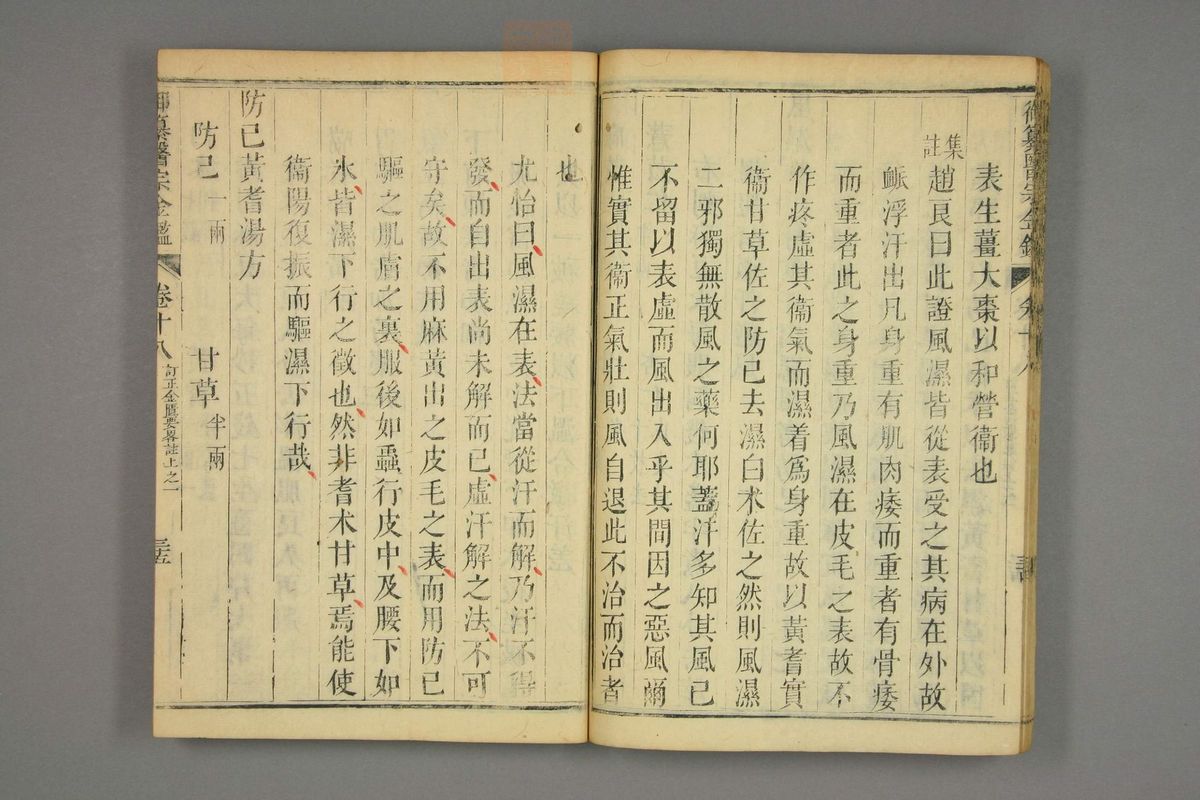 御纂醫宗金鑑 卷十八
表生薑大棗以和營衞也
集註
趙良曰此證風濕皆從表受之其病在外故
脈浮汗出凡身重有肌肉痿而重者有骨痿
而重者此之身重乃風濕在皮毛之表故不
作疼虛其衞氣而濕着爲身重故以黃耆實
衞甘草佐之防已去濕白术佐之然則風濕
二邪獨無散風之藥何耶蓋汗多知其風已
不留以表虛而風出入乎其間因之惡風爾
惟實其衞正氣壯則風自退此不治而治者
也
尤怡曰風濕在表法當從汗而解乃汗不得
發而自出表尚未解而已虛汗解之法不可
守矣故不用麻黃出之皮毛之表而用防已
驅之肌膚之裏服後如蟲行皮中及腰下如
氷皆濕下行之徵也然非耆术甘草焉能使
衞陽復振而驅濕下行哉
防已黃耆湯方
防己一兩 甘草半兩
御纂醫宗金鑑 卷十八 訂正金匱要畧註上之一 三五